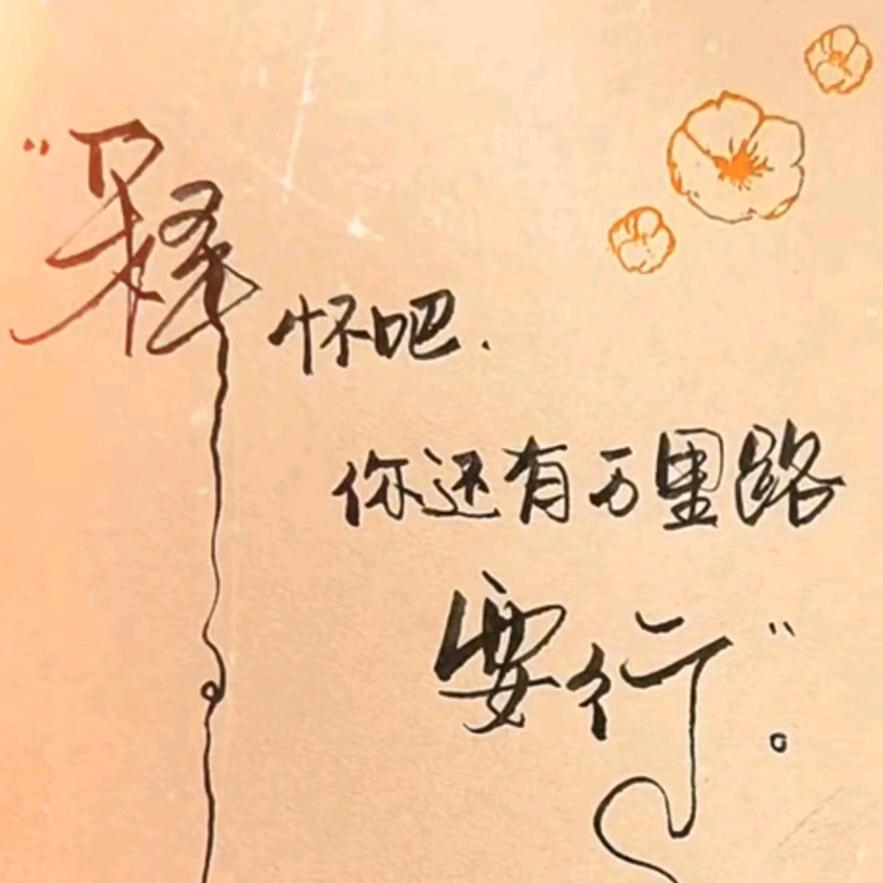 “释怀吧.
你还有万里路
要行”。